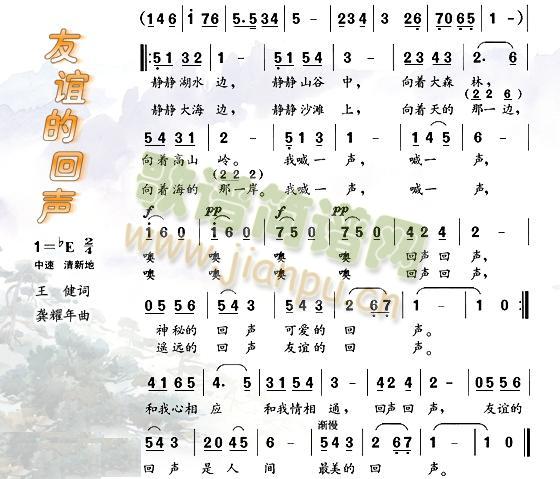 友谊的回声
1=♭E 2/4
中速 清新地
王 健词
龚耀年曲
(146 | i 76 | 5·534 | 5 - | 234 3 | 023 6 | 7065 | 1 -)
‖: 51 32 | 1 - | 51 534 | 3 - | 23 43 | 2· 6
静静湖水 边, 静静山谷 中, 向着大森 林,
(2 2 6)
静静大海 边, 静静沙滩 上, 向着天的 那一边,
54 31 | 2 - | 51 3 | 1 - | 145 | 6 -
向着高山 岭。 我喊一 声, 喊一 声,
(2 2 2)
向着海的 那一岸。 我喊一 声, 喊一 声,
f pp f pp
i60 | i60 | 750 | 750 | 424 | 2 -
噢 噢 噢 噢 回声回 声,
噢 噢 噢 噢 回声回 声,
05 56 | 54 3 | 54 3 | 2 67 | 1 - | 1 0 :‖
神秘的 回 声 可爱的 回 声。
遥远的 回 声 友谊的 回 声。
41 65 | 4· 5 | 31 54 | 3 - | 424 | 2 - | 05 56
和我心相 应 和我情相 通, 回声回 声, 友谊的
渐慢
54 3 | 20 45 | 6 - | 54 3 | 2 67 | 1 - | 1 0 ‖
回 声 是人 间 最美的 回 声。
歌谱简谱网
www.jianpu.cn